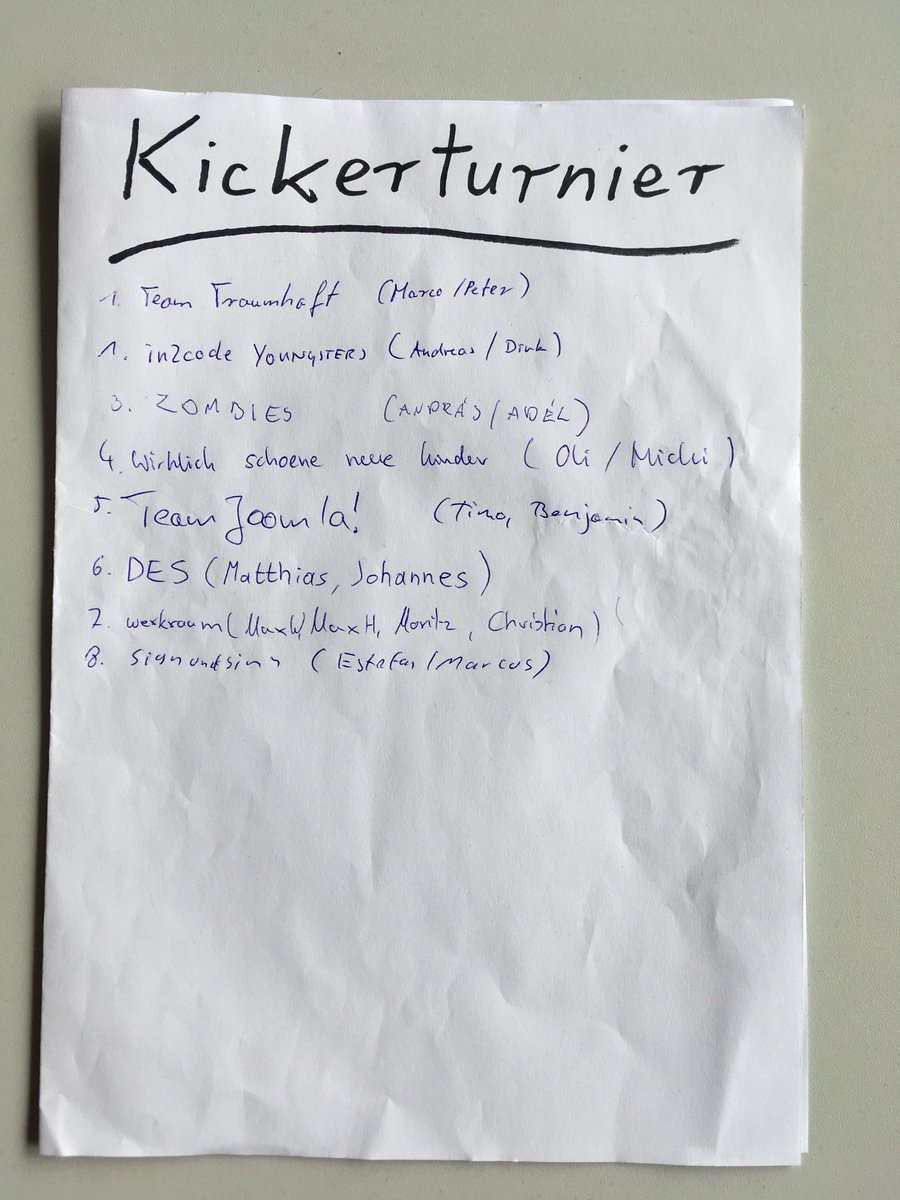 Kickerturnier
1. Team Traumhaft (Marco/Peter)
1. in2code YOUNGSTERS (Andreas/Dirk)
3. ZOMBIES (ANDRÁS/ADÉL)
4. Wirklich schoene neue kinder (Oli/Michi)
5. Team Joomla! (Tino, Benjamin)
6. DES (Matthias, Johannes)
7. werkraum (MaxW/MaxH, Moritz, Christian)
8. signundsinn (Estefan/Marcus)